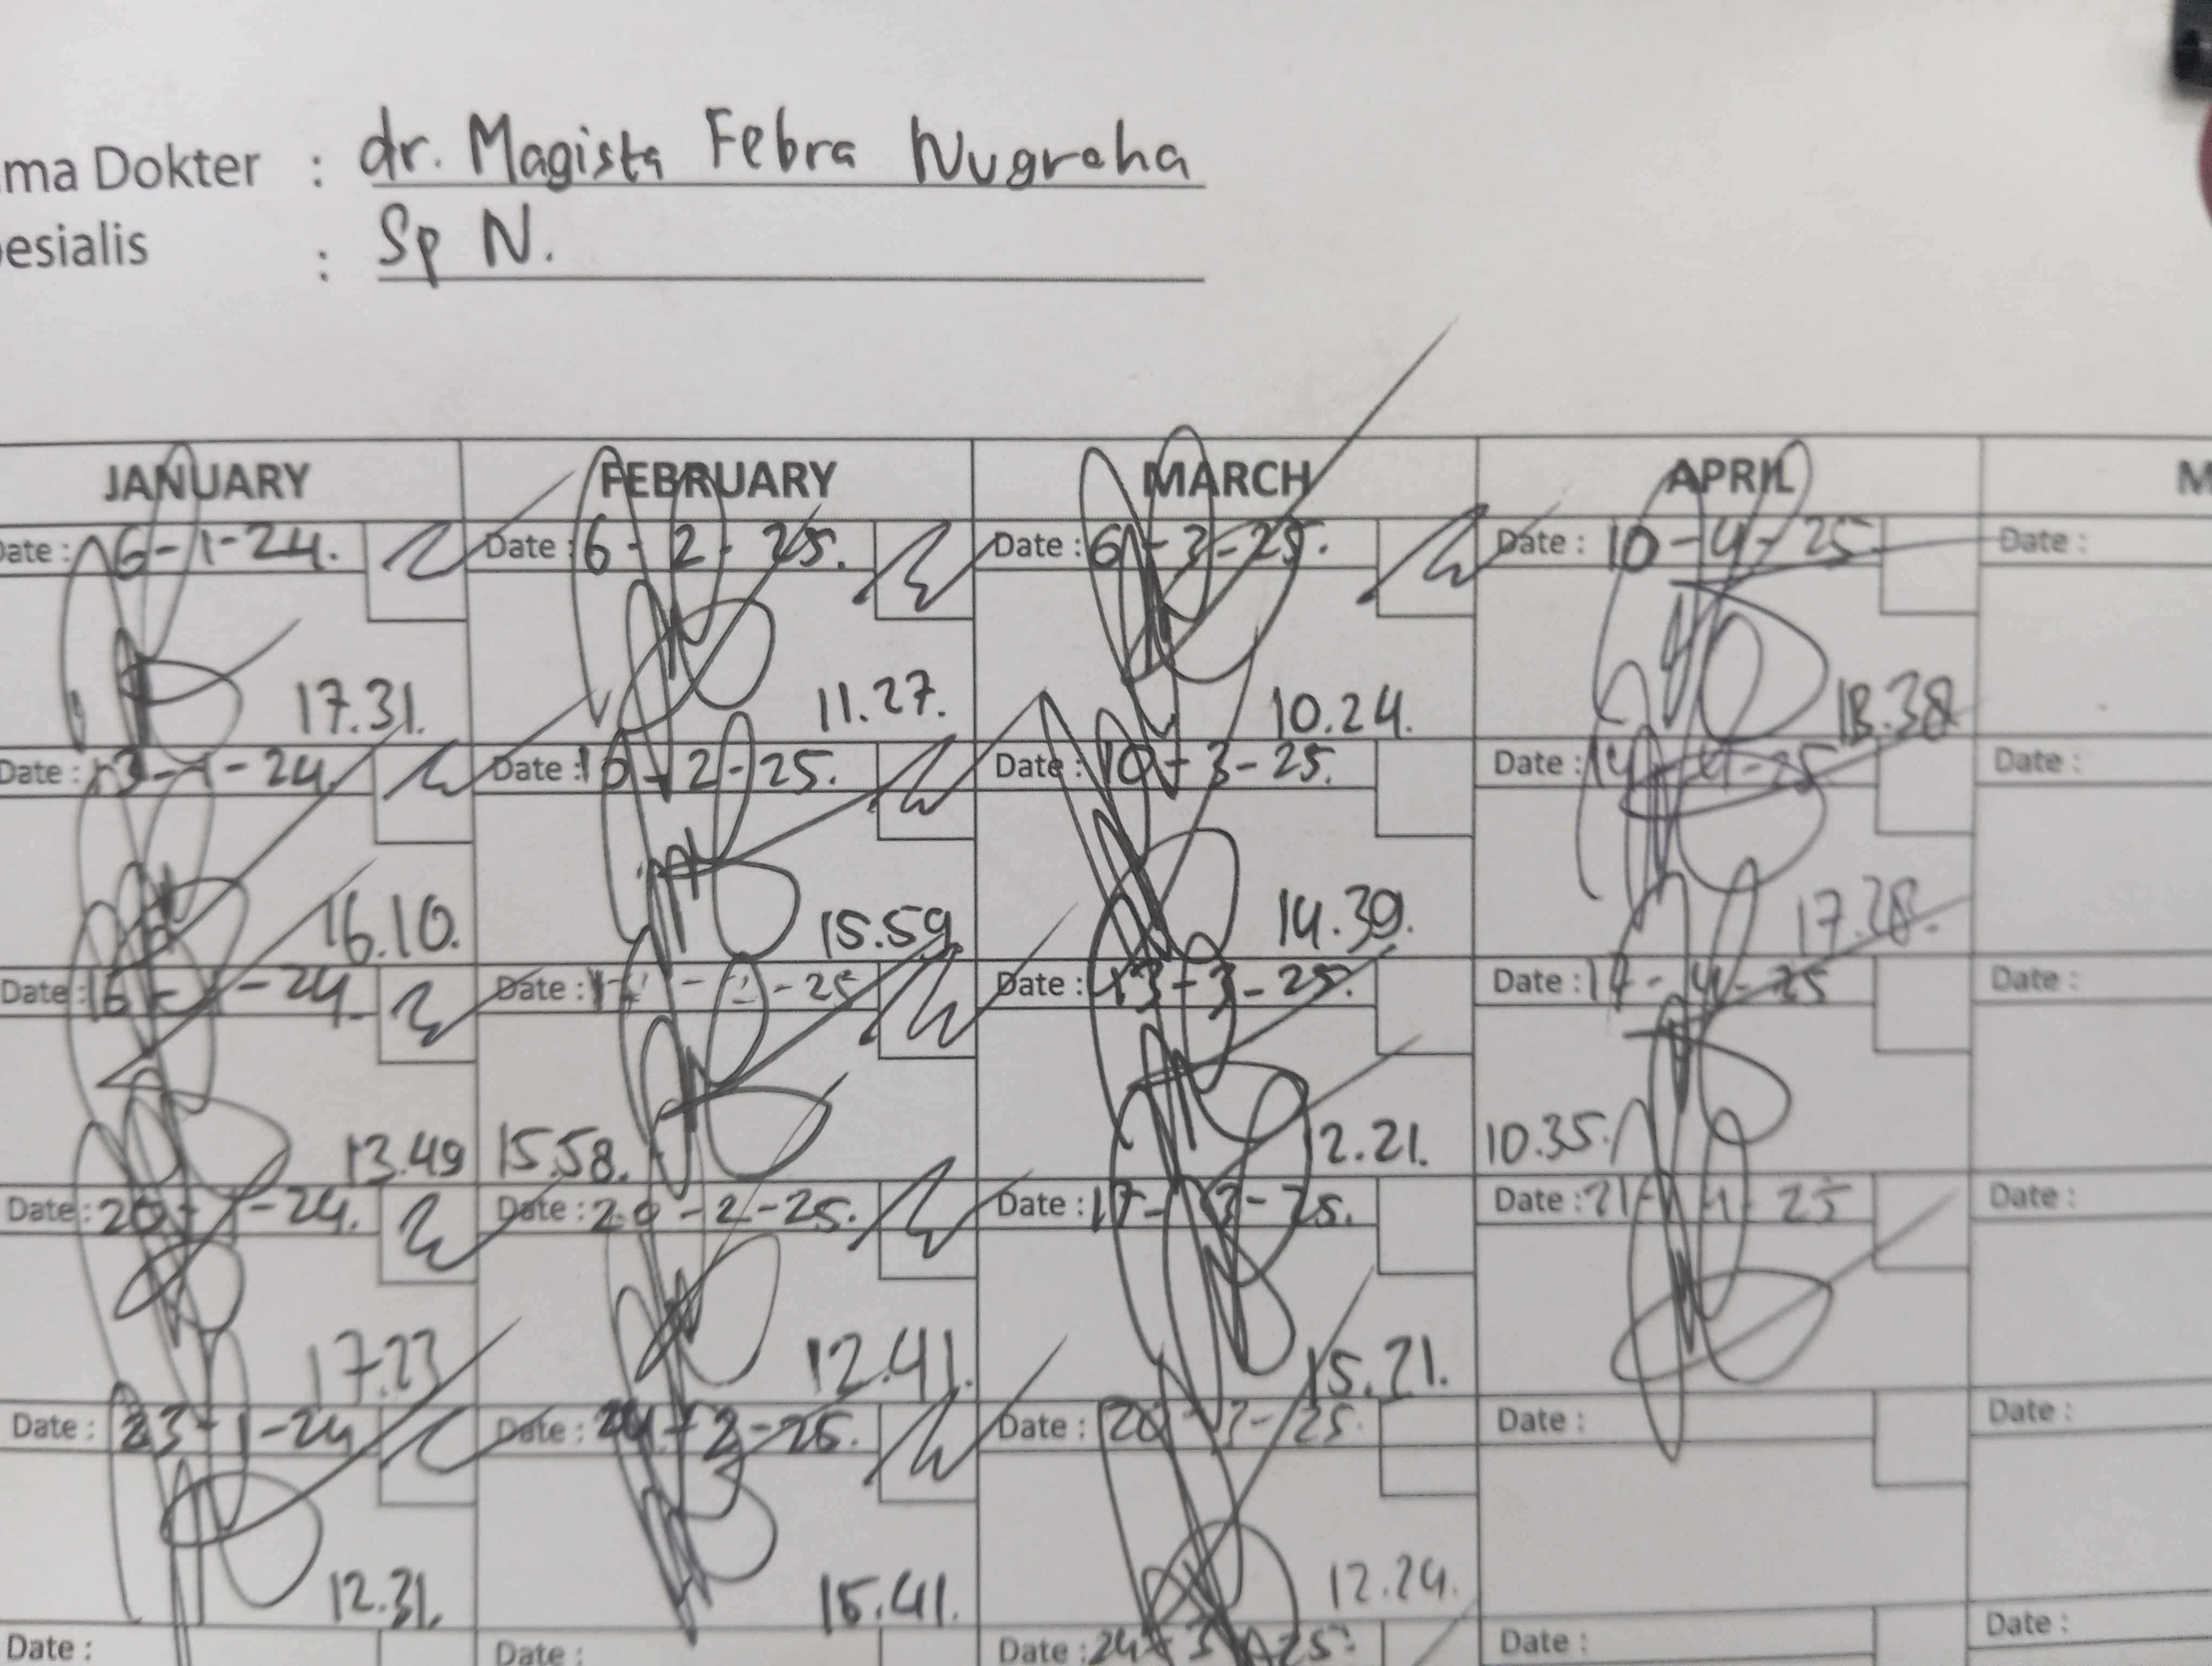 ma Dokter : dr. Magista Febra Nugraha
esialis : Sp N.
JANUARY FEBRUARY MARCH APRIL M
Date : 6-1-24. Date : 6-2-25. Date : 6-3-25. Date : 10-4-25 Date :
17.31. 11.27. 10.24. 18.38
Date : 13-1-24 Date : 10-2-25. Date : 10-3-25. Date : 14-4-25 Date :
16.10. 15.59 14.39. 17.28.
Date : 16-1-24 Date : -2-25 Date : 13-3-25. Date : 17-4-25 Date :
13.49 15.58. 2.21. 10.35.
Date : 20-1-24. Date : 20-2-25. Date : 17-3-25. Date : 21-4-25 Date :
17.23 12.41. 15.21.
Date : 23-1-24 Date : 24-2-25. Date : 20-3-25. Date : Date :
12.31. 15.41. 12.24.
Date : Date : Date : 24-3-25. Date : Date :